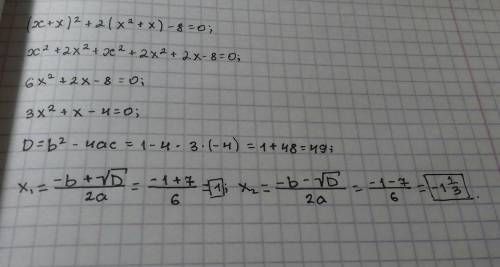 (x+x)² + 2(x²+x) - 8 = 0;
x² + 2x² + x² + 2x² + 2x - 8 = 0;
6x² + 2x - 8 = 0;
3x² + x - 4 = 0;
D = b² - 4ac = 1 - 4 · 3 · (-4) = 1 + 48 = 49;
x₁ = (-b + √D)/2a = (-1+7)/6 = 1; x₂ = (-b - √D)/2a = (-1-7)/6 = -1 1/3.